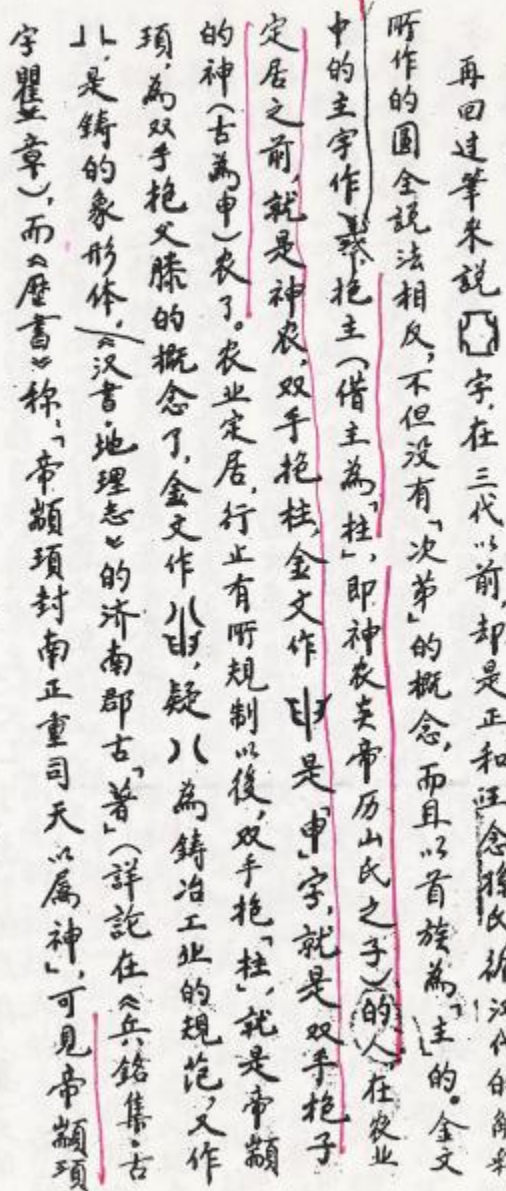 再回过筆来説 字,在三代以前,却是正和汪念孫氏循汉代的解
所作的圆全説法相反,不但没有「次第」的概念,而且以首族為「主」的。金文
中的主字作 抱主(借主為「柱」,即神农炎帝历山氏之子)的人,在农业
定居之前,就是神农,双手抱柱,金文作 是「申」字,就是双手抱子
的神(古為申)农了。农业定居,行止有所規制以後,双手抱「柱」,就是帝顓
頊,為双手抱父膝的概念了,金文作 ,疑 為鋳冶工业的規范,又作
,是鋳的象形体,《汉書·地理志》的济南郡古「著」(詳論在《兵銘集·古
字瞿 章),而《歷書》称:「帝顓頊封南正重司天以属神」,可見帝顓頊